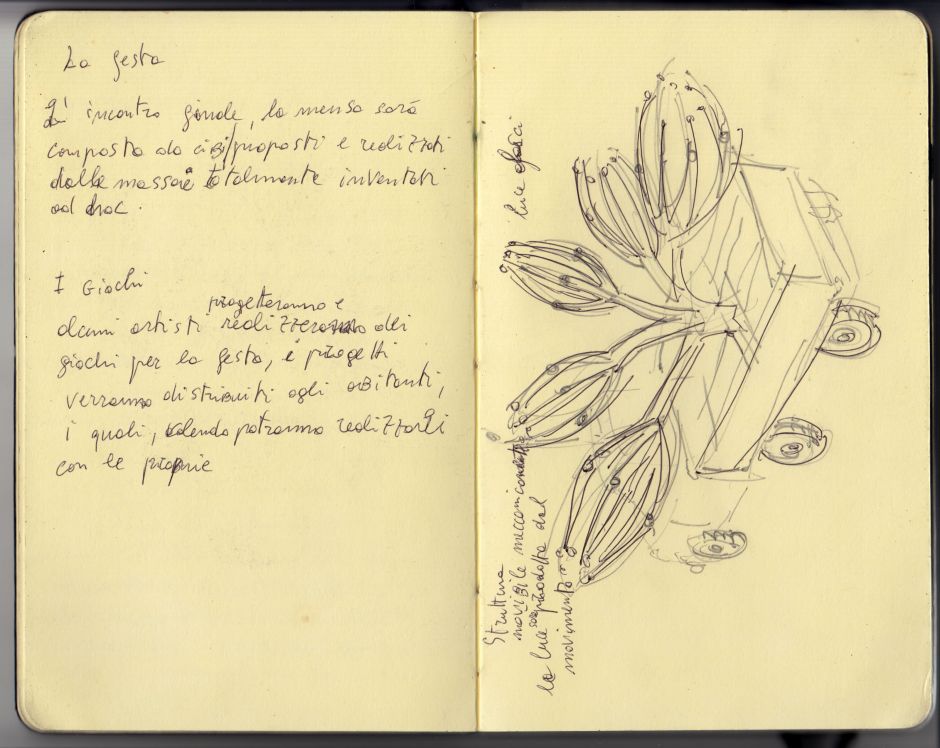 La festa
L' incontro finale, la mensa sarà
composta da cibi proposti e realizzati
dalle massaie totalmente inventati
ad hoc.
I Giochi
progetteranno e
alcuni artisti realizzeranno dei
giochi per la festa, i progetti
verranno distribuiti agli abitanti,
i quali, volendo potranno realizzarli
con le proprie
luce
Struttura
movibile meccanicamente
la luce sarà prodotta dal
movimento